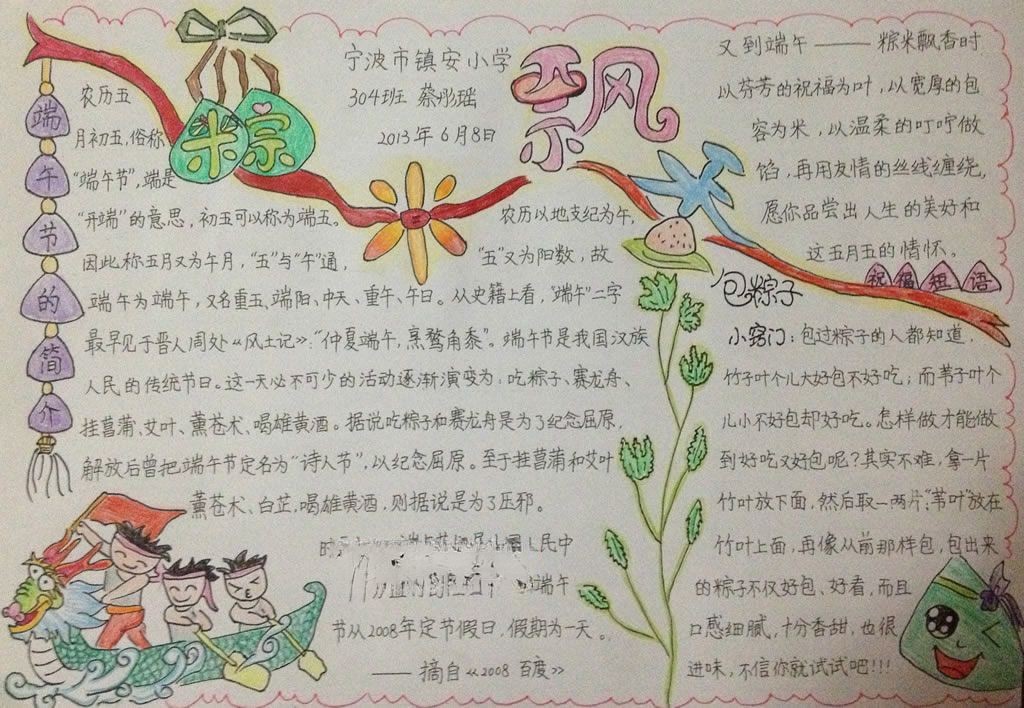 端午节的简介
粽棕
飘风
宁波市镇安小学
304班 蔡彤瑶
2013年6月8日
农历五
月初五,俗称
“端午节”,端是
“开端”的意思,初五可以称为端五。
农历以地支纪为午,
因此称五月又为午月,“五”与“午”通,
“五”又为阳数,故
端午为端午,又名重五、端阳、中天、重午、午日。从史籍上看,“端午”二字
最早见于晋人周处《风土记》:“仲夏端午,烹鹜角黍”。端午节是我国汉族
人民的传统节日。这一天必不可少的活动逐渐演变为:吃粽子、赛龙舟、
挂菖蒲、艾叶、薰苍术、喝雄黄酒。据说吃粽子和赛龙舟是为了纪念屈原,
解放后曾把端午节定名为“诗人节”,以纪念屈原。至于挂菖蒲和艾叶
薰苍术、白芷,喝雄黄酒,则据说是为了压邪。
民中
的端午
节从2008年定节假日,假期为一天。
——摘自《2008百度》
又到端午——粽米飘香时
以芬芳的祝福为叶,以宽厚的包
容为米,以温柔的叮咛做
馅,再用友情的丝线缠绕,
愿你品尝出人生的美好和
这五月五的情怀。
祝福短语
包粽子
小窍门:包过粽子的人都知道,
竹子叶个儿大好包不好吃;而苇子叶个
儿小不好包却好吃。怎样做才能做
到好吃又好包呢?其实不难,拿一片
竹叶放下面,然后取一两片“苇叶”放在
竹叶上面,再像从前那样包,包出来
的粽子不仅好包、好看,而且
口感细腻,十分香甜,也很
进味,不信你就试试吧!!!